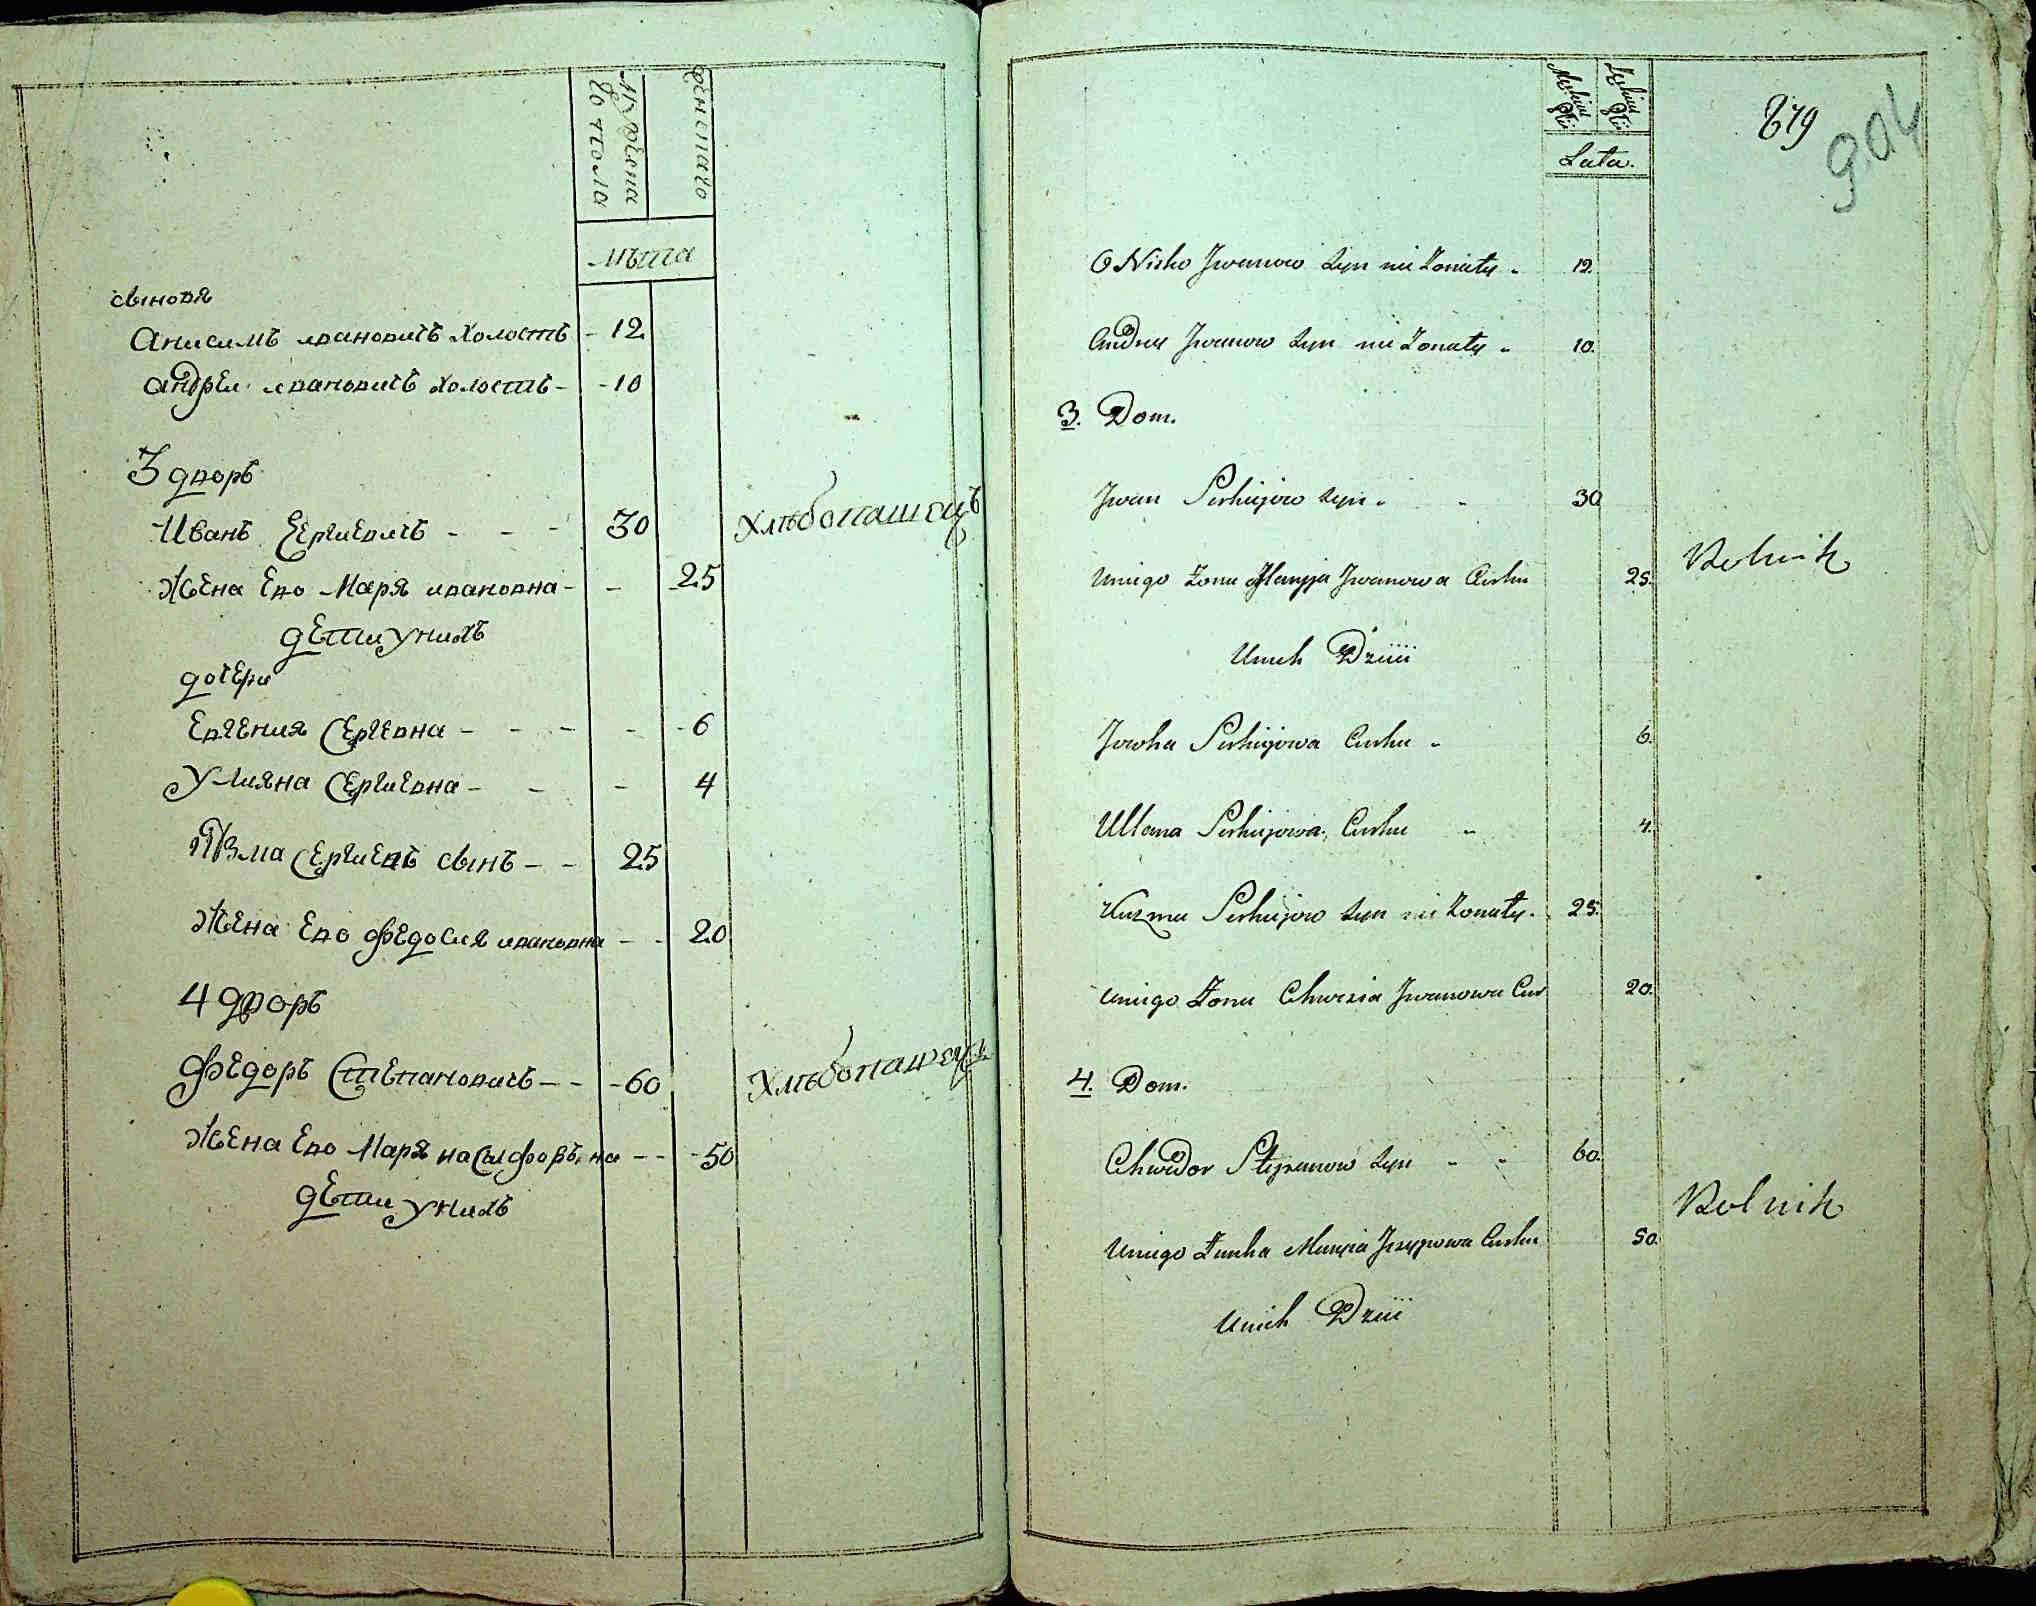 мужеска
го пола
женскаго
лѣта
сыновя
Анисимъ ивановичъ холостъ - 12
андреи ивановичъ холостъ - - 10
3 дворъ
Иванъ Сергиевичъ - - - 30 хлѣбопашецъ
Жена Ево Маря ивановна - - 25
дети у нихъ
дочери
Евгения Сергевна - - - - - 6
Улияна Сергиевна - - - 4
Кузма Сергиевъ сынъ - - 25
Жена Ево Федосия ивановна - - 20
4 дворъ
Федоръ Степановичъ - - - 60 хлѣбопашецъ
Жена Ево Маря - - - 50
дети у нихъ
879
904
Lata.
O Nisko Iwanow syn nie żonaty. 12.
Andrey Iwanow syn nie żonaty. 10.
3. Dom.
Iwan Serhiyow syn. 30
Uniego żona Iwanowa Curka 25. Rolnik
Unich Dzieci
Jowha Serhiyowa Curka 6.
Ullana Serhiyowa Curka 4.
Kuzma Serhiyow syn nie żonaty. 25.
Uniego żona Chwesia Iwanowa Cur 20.
4. Dom.
Chwedor Stepanow syn 60.
Rolnik
Uniego Curka 50.
Unich Dzieci